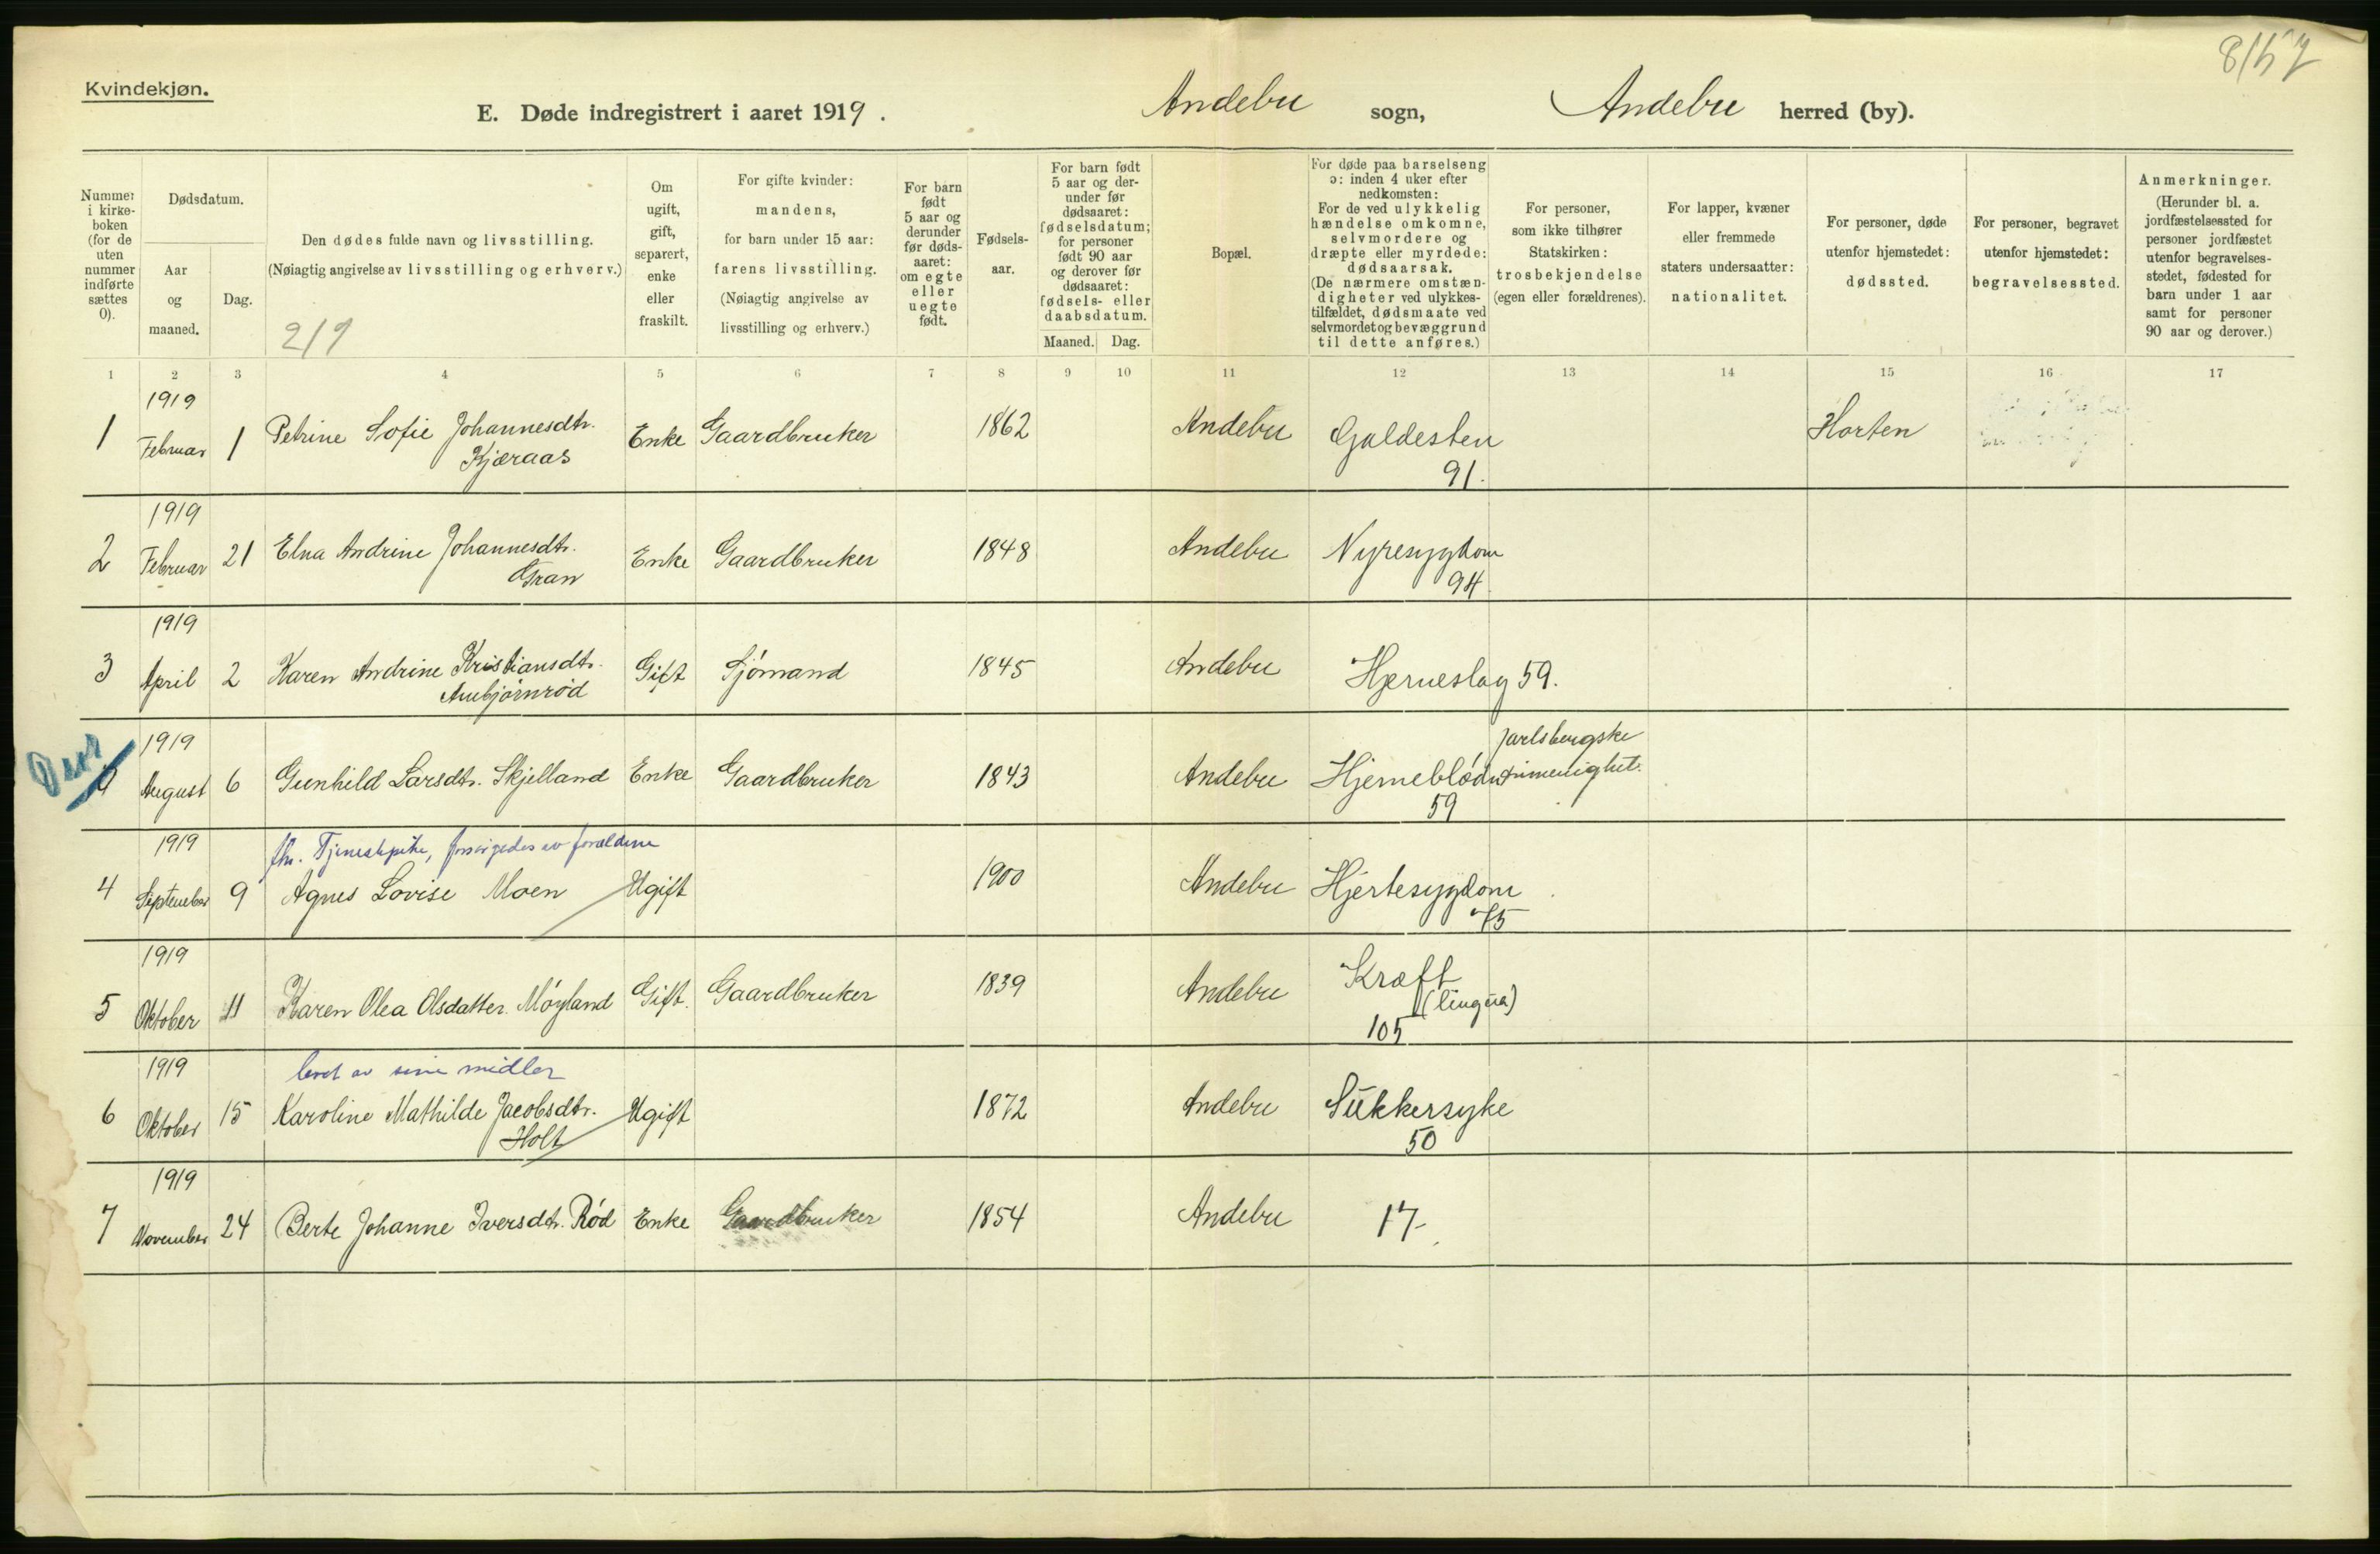 8/57
Kvindekjøn.
E. Døde indregistrert i aaret 1919. Andebu sogn, Andebu herred (by).
Nummer i kirke-boken (for de uten nummer indførte sættes 0).
Dødsdatum.
Aar og maaned.
Dag.
Den dødes fulde navn og livsstilling.
(Nøiagtig angivelse av livsstilling og erhverv.)
2/9
Om ugift, gift, separert, enke eller fraskilt.
For gifte kvinder:
mandens,
for barn under 15 aar:
farens livsstilling.
(Nøiagtig angivelse av
livsstilling og erhverv.)
For barn født 5 aar og derunder før døds-aaret: om egte eller uegte født.
Fødsels-aar.
For barn født 5 aar og der-under før dødsaaret: fødselsdatum; for personer født 90 aar og derover før dødsaaret: fødsels- eller daabsdatum.
Maaned. Dag.
Bopæl.
For døde paa barselseng
ɔ: inden 4 uker efter
nedkomsten:
For de ved ulykkelig
hændelse omkomne,
selvmordere og
dræpte eller myrdede:
dødsaarsak.
(De nærmere omstæn-
digheter ved ulykkes-
tilfældet, dødsmaate ved
selvmordet og bevæggrund
til dette anføres.)
For personer,
som ikke tilhører
Statskirken:
trosbekjendelse
(egen eller forældrenes).
For lapper, kvæner
eller fremmede
staters undersaatter:
nationalitet.
For personer, døde
utenfor hjemstedet:
dødssted.
For personer, begravet
utenfor hjemstedet:
begravelsessted.
Anmerkninger.
(Herunder bl. a.
jordfæstelsessted for
personer jordfæstet
utenfor begravelses-
stedet, fødested for
barn under 1 aar
samt for personer
90 aar og derover.)
1 2 3 4 5 6 7 8 9 10 11 12 13 14 15 16 17
1919
1 Februar 1 Petrine Sofie Johannesdtr. Enke Gaardbruker 1862 Andebu Galdesten Horten
Kjæraas 91.
1919
2 Februar 21 Elna Andrine Johannesdtr. Enke Gaardbruker 1848 Andebu Nyresygdom
Gran 94.
1919
3 April 2 Karen Andrine Kristiansdtr. Gift Sjømand 1845 Andebu Hjerneslag 59.
Aubjørnrød
1919 Jarlsbergske
0 August 6 Gunhild Larsdtr. Skjelland Enke Gaardbruker 1843 Andebu Hjerneblødn. frimenighet.
59
1919 fhv. Tjenestepike, forsørgedes av forældrene
4 September 9 Agnes Lovise Moen Ugift 1900 Andebu Hjertesygdom
75
1919
5 Oktober 11 Karen Olea Olsdatter. Møyland Gift. Gaardbruker 1839 Andebu Kræft
(lingua)
105
1919 levet av sine midler
6 Oktober 15 Karoline Mathilde Jacobsdtr. Ugift 1872 Andebu Sukkersyke
Holt 50
1919
7 November 24 Berte Johanne Iversdtr. Rød Enke Gaardbruker 1854 Andebu 17.